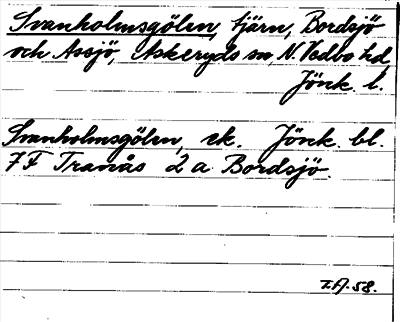 Svanholmsgölen, tjärn, Bordsjö
och Assjö, Askeryds sn, N. Vedbo hd,
Jönk. l.
Svanholmsgölen, ek. Jönk. bl.
7F Tranås 2 a Bordsjö.
T.A. 58.